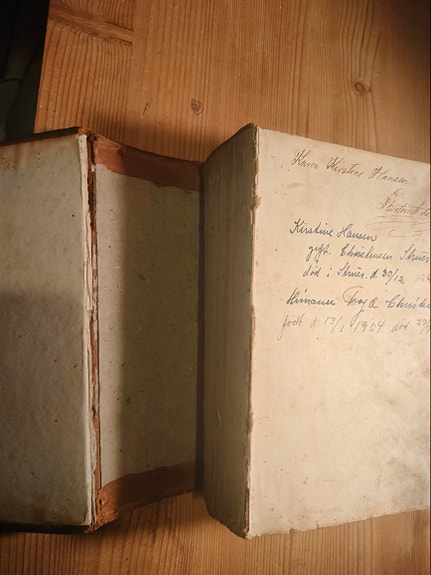 Karen Kirstine Hansen
Kirstine Hansen
gift. Christensen Struer
død i Struer. d. 30/12
Frode Christen
født d 13/1 1904 død